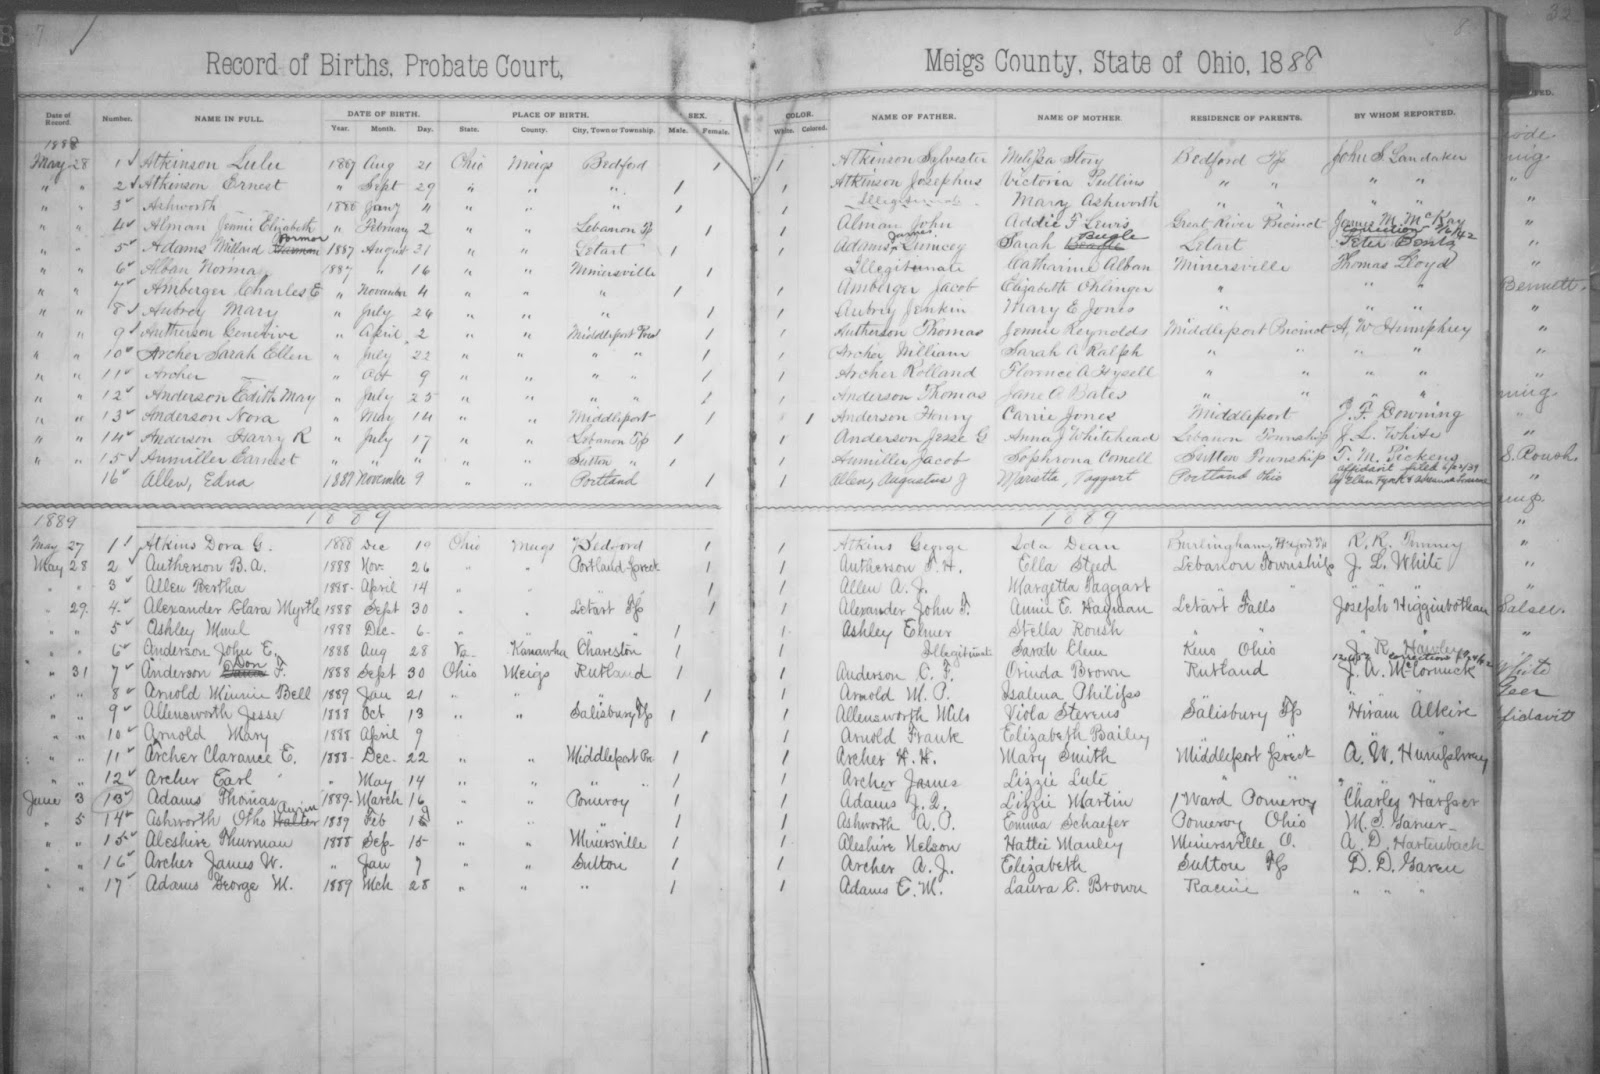 7
8
32
Record of Births, Probate Court, Meigs County, State of Ohio, 1888
Date of Record. Number. NAME IN FULL. DATE OF BIRTH. Year. Month. Day. PLACE OF BIRTH. State. County. City, Town or Township. SEX. Male. Female. COLOR. White. Colored. NAME OF FATHER. NAME OF MOTHER. RESIDENCE OF PARENTS. BY WHOM REPORTED.
1888
May 28 1 Atkinson Lulu 1887 Aug 21 Ohio Meigs Bedford 1 1 Atkinson Sylvester Melissa Story Bedford Tp John S. Landaker
" " 2 Atkinson Ernest " Sept 29 " " " 1 1 Atkinson Josephus Victoria Pullins " " " "
" " 3 Ashworth 1888 Jany 4 " " " 1 1 Illegitimate Mary Ashworth " " " "
" " 4 Alman Jennie Elizabeth " February 2 " " Lebanon Tp 1 1 Alman John Addie F Lewis Great River Precinct James M. McKay
" " 5 Adams Millard Forman 1887 August 21 " " Letart 1 1 Adams James Quincey Sarah Beegle Letart Correction 7/6/42 Peter Bentz
" " 6 Alban Norma 1887 " 16 " " Minersville 1 1 Illegitimate Catharine Alban Minersville Thomas Lloyd
" " 7 Amberger Charles E " November 4 " " " 1 1 Amberger Jacob Elizabeth Ohlinger " " "
" " 8 Aubrey Mary " July 26 " " " 1 1 Aubrey Jenkin Mary E Jones " " "
" " 9 Autherson Genevive " April 2 " " Middleport Prect 1 1 Autherson Thomas Jennie Reynolds Middleport Precinct A, W Humphrey
" " 10 Archer Sarah Ellen " July 22 " " " " 1 1 Archer William Sarah A Ralph " " " "
" " 11 Archer " Oct 9 " " " " 1 1 Archer Rolland Florence A Hysell " " " "
" " 12 Anderson Edith May " July 25 " " " " 1 1 Anderson Thomas Jane A Bates " " " "
" " 13 Anderson Nora " May 14 " " Middleport 1 1 Anderson Henry Carrie Jones Middleport J. F. Downing
" " 14 Anderson Harry R " July 17 " " Lebanon Tp 1 1 Anderson Jesse G Anna J Whitehead Lebanon Township J. L. White
" " 15 Aumiller Earnest " " " " " Sutton " 1 1 Aumiller Jacob Sophrona Cornell Sutton Township T. M. Pickens
16 Allen, Edna 1887 November 9 " " Portland 1 1 Allen, Augustus J Marietta, Taggart Portland Ohio affidavit filed
1889 1889 1889
May 27 1 Atkins Dora G. 1888 Dec 19 Ohio Meigs Bedford 1 1 Atkins George Ida Dean Burlingham,
May 28 2 Autherson B. A. 1888 Nov. 26 " " Portland Prect 1 1 Autherson T. H. Ella Sted Lebanon Township J. L. White
" " 3 Allen Bertha 1888 April 14 " " " 1 1 Allen A. J. Margetta Taggart " " "
" 29. 4 Alexander Clara Myrtle 1888 Sept 30 " " Letart Tp 1 1 Alexander John F. Annie E. Hayman Letart Falls Joseph Higginbotham
" " 5 Ashley 1888 Dec. 6 " " " 1 1 Ashley Elmer Stella Roush " "
" " 6 Anderson John E. 1888 Aug 28 Va. Kanawha Charleston 1 1 Illegitimate Sarah Keno Ohio J. R. Hawley
" 31 7 Anderson Don F. 1888 Sept 30 Ohio Meigs Rutland 1 1 Anderson C. F. Orinda Brown Rutland J. A. McCormick
" " 8 Arnold Minnie Bell 1889 Jan 21 " " " 1 1 Arnold M. P. Isalina Philips " "
" " 9 Allensworth Jesse 1888 Oct 13 " " Salisbury Tp 1 1 Allensworth Milo Viola Stevens Salisbury Tp Hiram Alkire
" " 10 Arnold Mary 1888 April 9 " " " 1 1 Arnold Frank Elizabeth Bailey " "
" " 11 Archer Clarance E. 1888 Dec. 22 " " Middleport Pre 1 1 Archer H. H. Mary Smith Middleport Prect A. W. Humphrey
" " 12 Archer Earl " May 14 " " " 1 1 Archer James Lizzie Lute " " "
June 3 13 Adams Thomas 1889 March 16 " " Pomeroy 1 1 Adams J. Q. Lizzie Martin 1 Ward Pomeroy Charley Harpser
" 5 14 Ashworth Otho 1889 Feb " " " 1 1 Ashworth A. P. Emma Schaefer Pomeroy Ohio M. S.
" " 15 Aleshire Thurman 1888 Sep. 15 " " Minersville 1 1 Aleshire Nelson Hattie Manley Minersville O. A. D. Hartenbach
" " 16 Archer James W. " Jan 7 " " Sutton 1 1 Archer A. J. Elizabeth Sutton Tp D. D. Garen
" " 17 Adams George M. 1889 Mch 28 " " " 1 1 Adams E. M. Laura E. Brown Racine " " "
Bennett.
S. Roush.
White